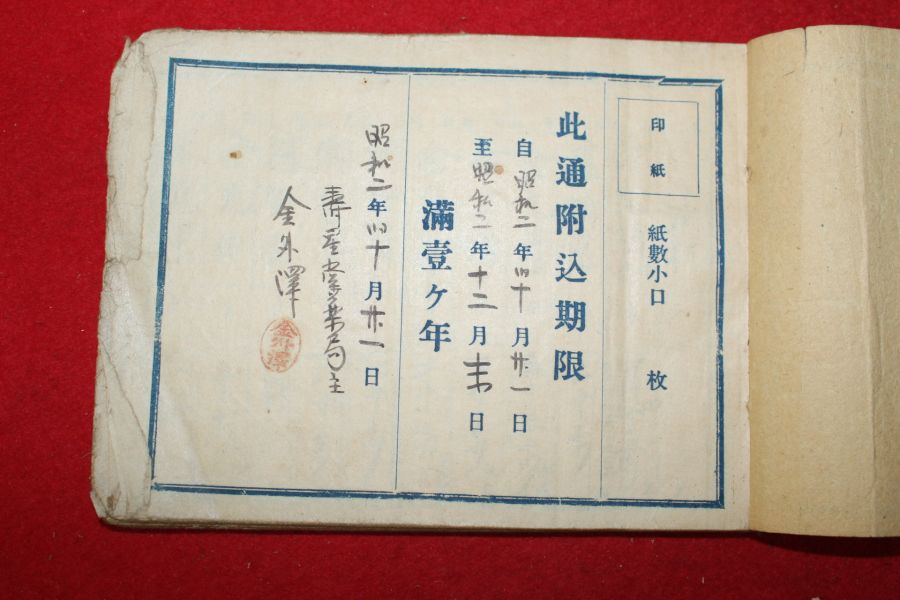 印紙
紙數小口　枚
此通附込期限
自昭和二年旧十月廿一日
至昭和二年十二月末日
滿壹ケ年
昭和二年旧十月廿一日
壽星堂薬局主
金外澤
金外澤